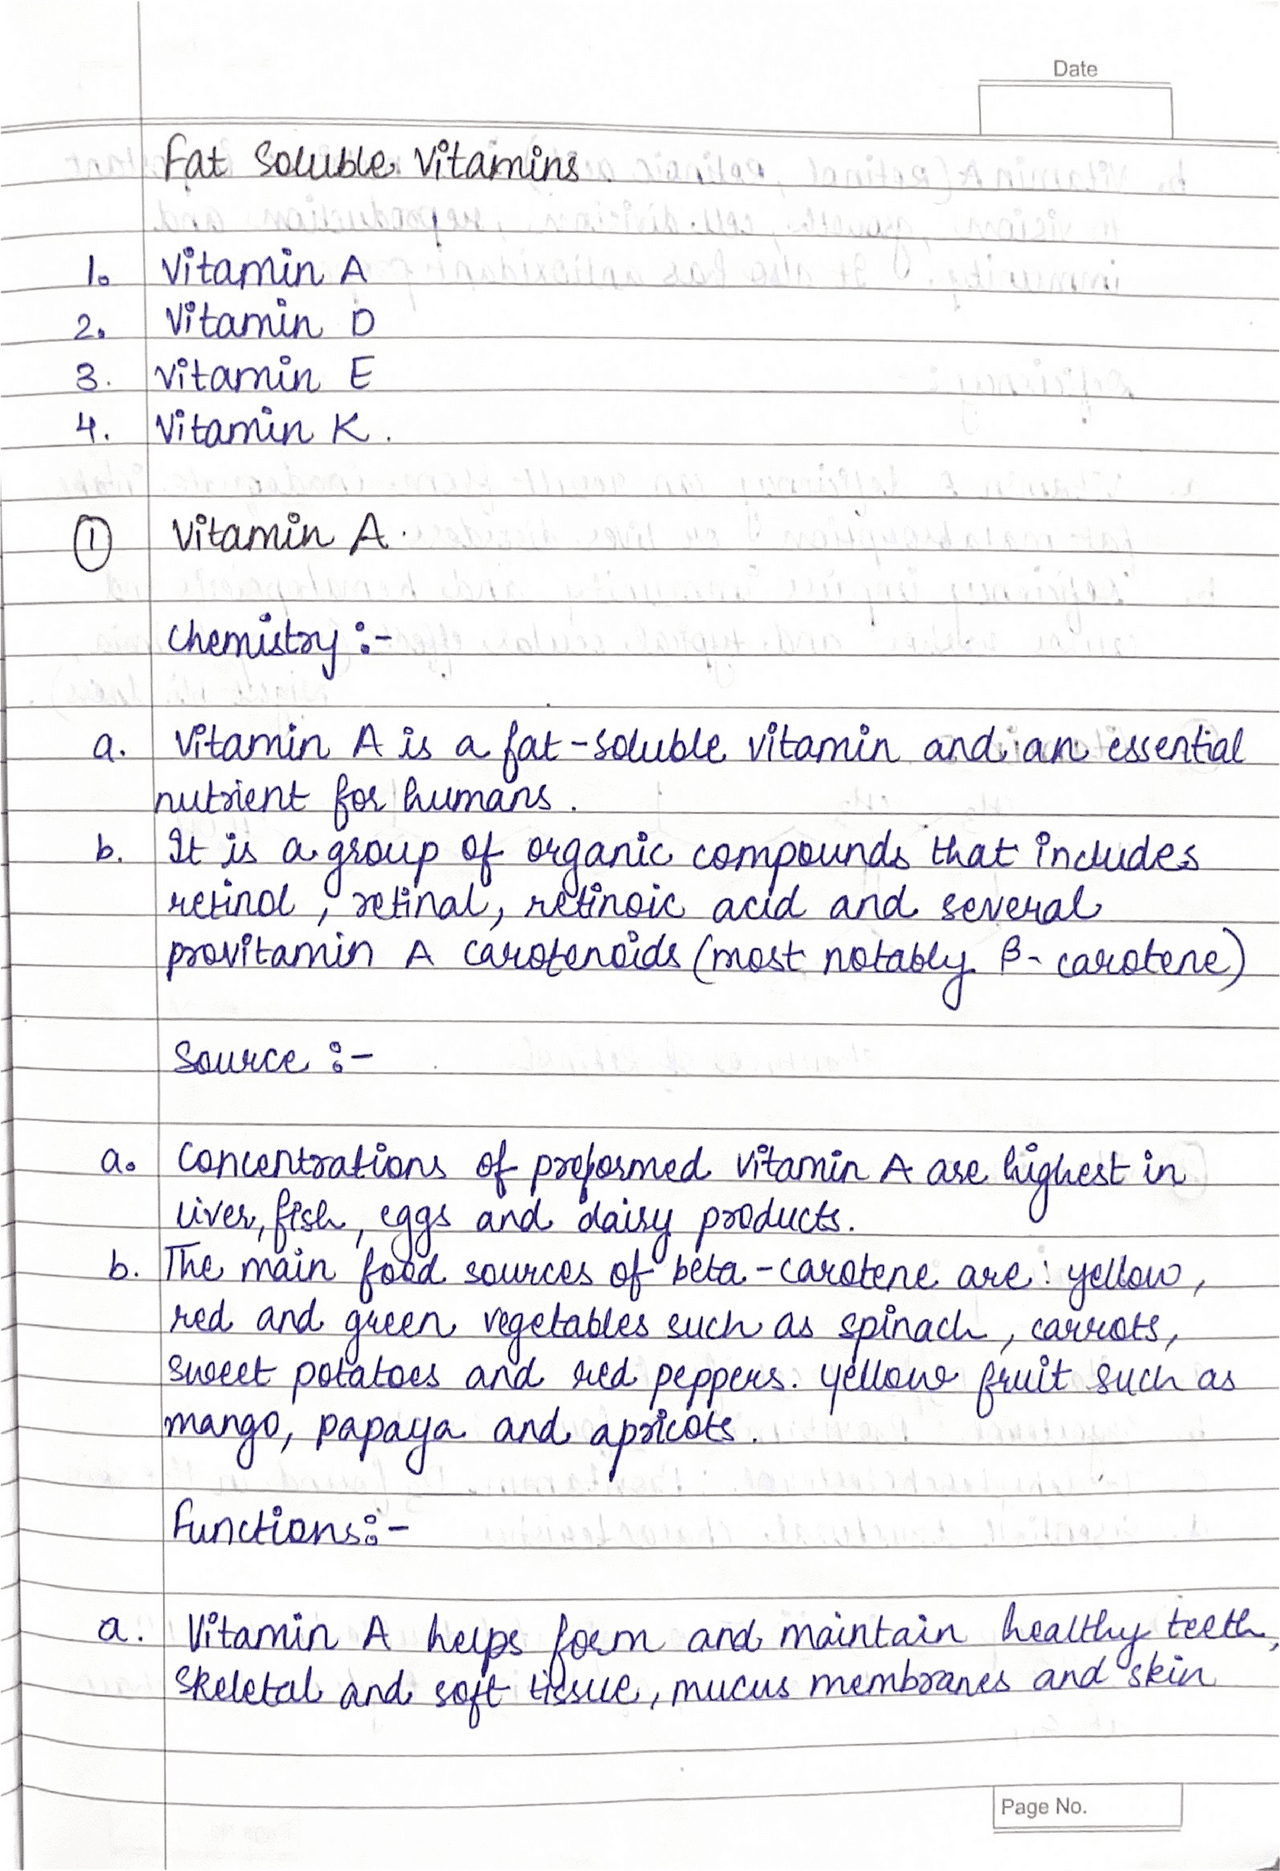 Date
Fat Soluble Vitamins.
1. Vitamin A
2. Vitamin D
3. Vitamin E
4. Vitamin K.
① Vitamin A.
Chemistry :-
a. Vitamin A is a fat-soluble vitamin and an essential
nutrient for humans.
b. It is a group of organic compounds that includes
retinol, retinal, retinoic acid and several
provitamin A carotenoids (most notably β-carotene)
Source :-
a. Concentrations of preformed vitamin A are highest in
liver, fish, eggs and dairy products.
b. The main food sources of beta-carotene are: yellow,
red and green vegetables such as spinach, carrots,
sweet potatoes and red peppers. yellow fruit such as
mango, papaya and apricots.
Functions:-
a. Vitamin A helps form and maintain healthy teeth,
skeletal and soft tissue, mucus membranes and skin
Page No.